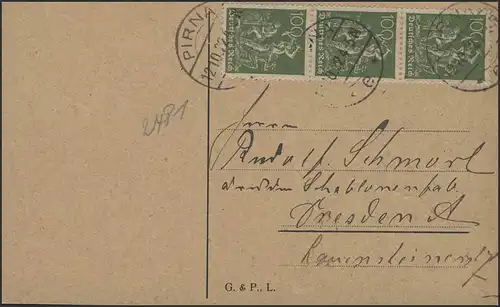 PIRNA
12.10.22
100 100 100
Deutsches Reich Deutsches Reich Deutsches Reich
2481
Herrn
Rudolf Schmorl
Schablonenfab.
Dresden A
G. & P., L.